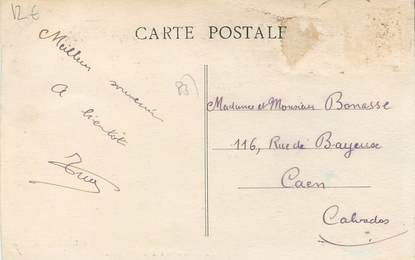 12 €
CARTE POSTALE
Meilleur souvenir
A bientôt
83
Madame et Monsieur Bonasse
116, Rue de Bayeux
Caen
Calvados